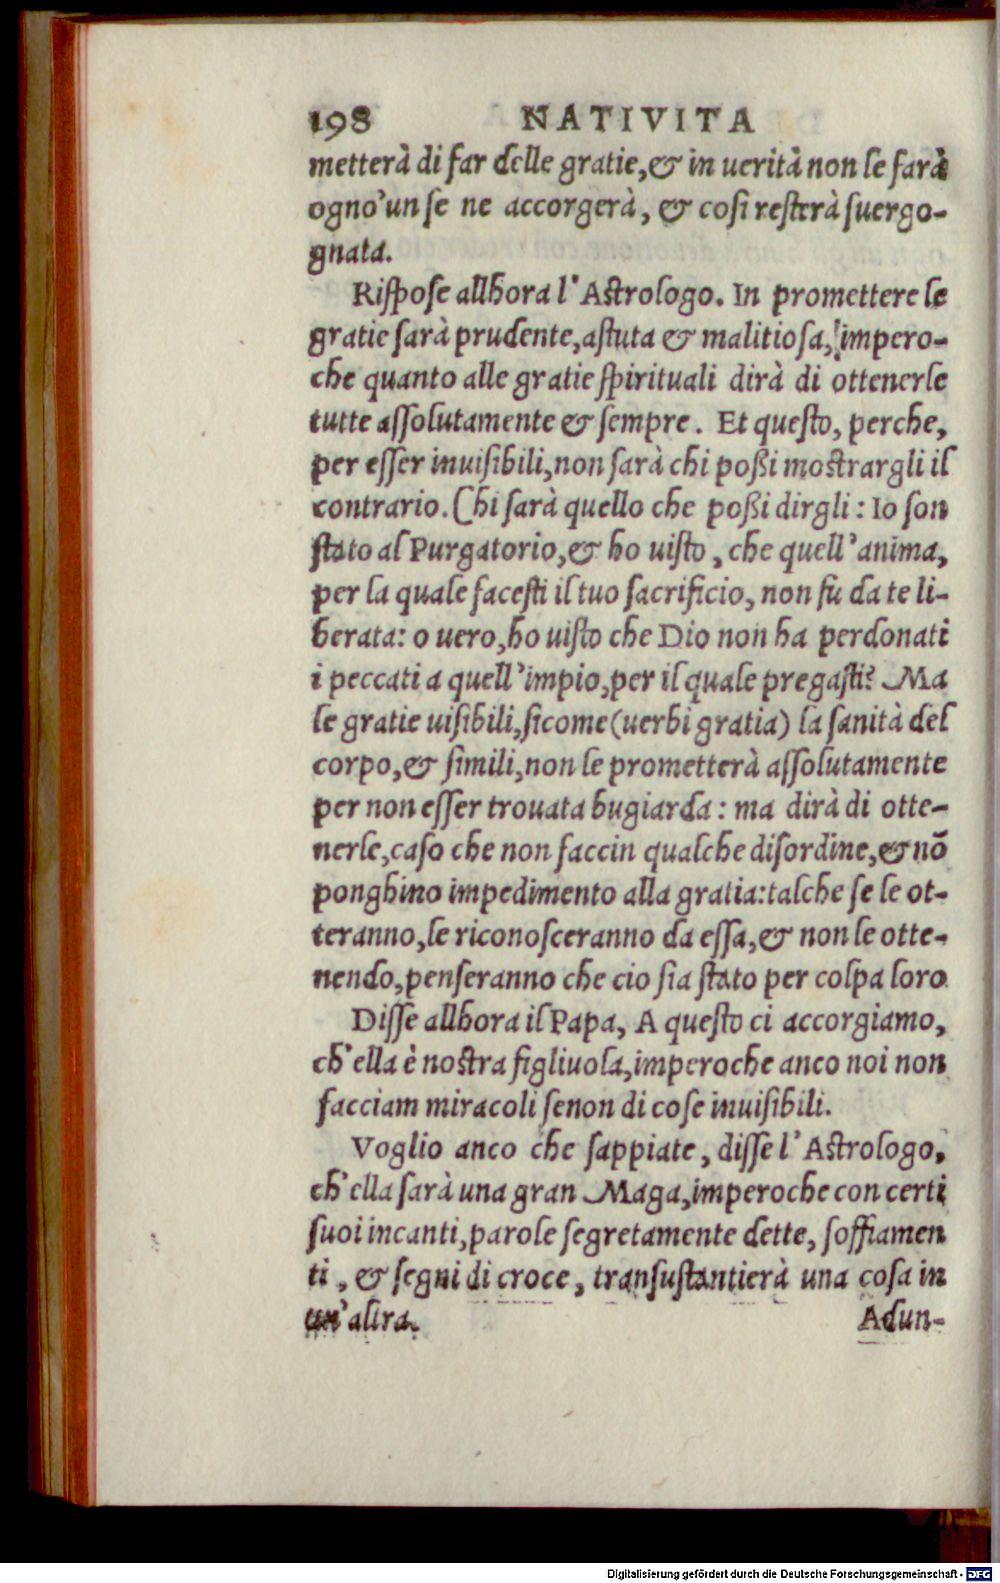 198 NATIVITA
metterà di far delle gratie, & in uerità non le farà
ogno'un se ne accorgerà, & cosi resterà suergo-
gnata.
Rispose allhora l'Astrologo. In promettere le
gratie sarà prudente, astuta & malitiosa, impero-
che quanto alle gratie spirituali dirà di ottenerle
tutte assolutamente & sempre. Et questo, perche,
per esser inuisibili, non sarà chi possi mostrargli il
contrario. Chi sarà quello che possi dirgli: Io son
stato al Purgatorio, & ho uisto, che quell'anima,
per la quale facesti il tuo sacrificio, non fu da te li-
berata: o uero, ho uisto che Dio non ha perdonati
i peccati a quell'impio, per il quale pregasti? Ma
le gratie uisibili, sicome (uerbi gratia) la sanità del
corpo, & simili, non le prometterà assolutamente
per non esser trouata bugiarda: ma dirà di otte-
nerle, caso che non faccin qualche disordine, & nō
ponghino impedimento alla gratia: talche se le ot-
teranno, le riconosceranno da essa, & non le otte-
nendo, penseranno che cio sia stato per colpa loro
Disse allhora il Papa, A questo ci accorgiamo,
ch'ella è nostra figliuola, imperoche anco noi non
facciam miracoli senon di cose inuisibili.
Voglio anco che sappiate, disse l'Astrologo,
ch'ella sarà una gran Maga, imperoche con certi
suoi incanti, parole segretamente dette, soffiamen
ti, & segni di croce, transustantierà una cosa in
un'altra. Adun-
Digitalisierung gefördert durch die Deutsche Forschungsgemeinschaft - DFG